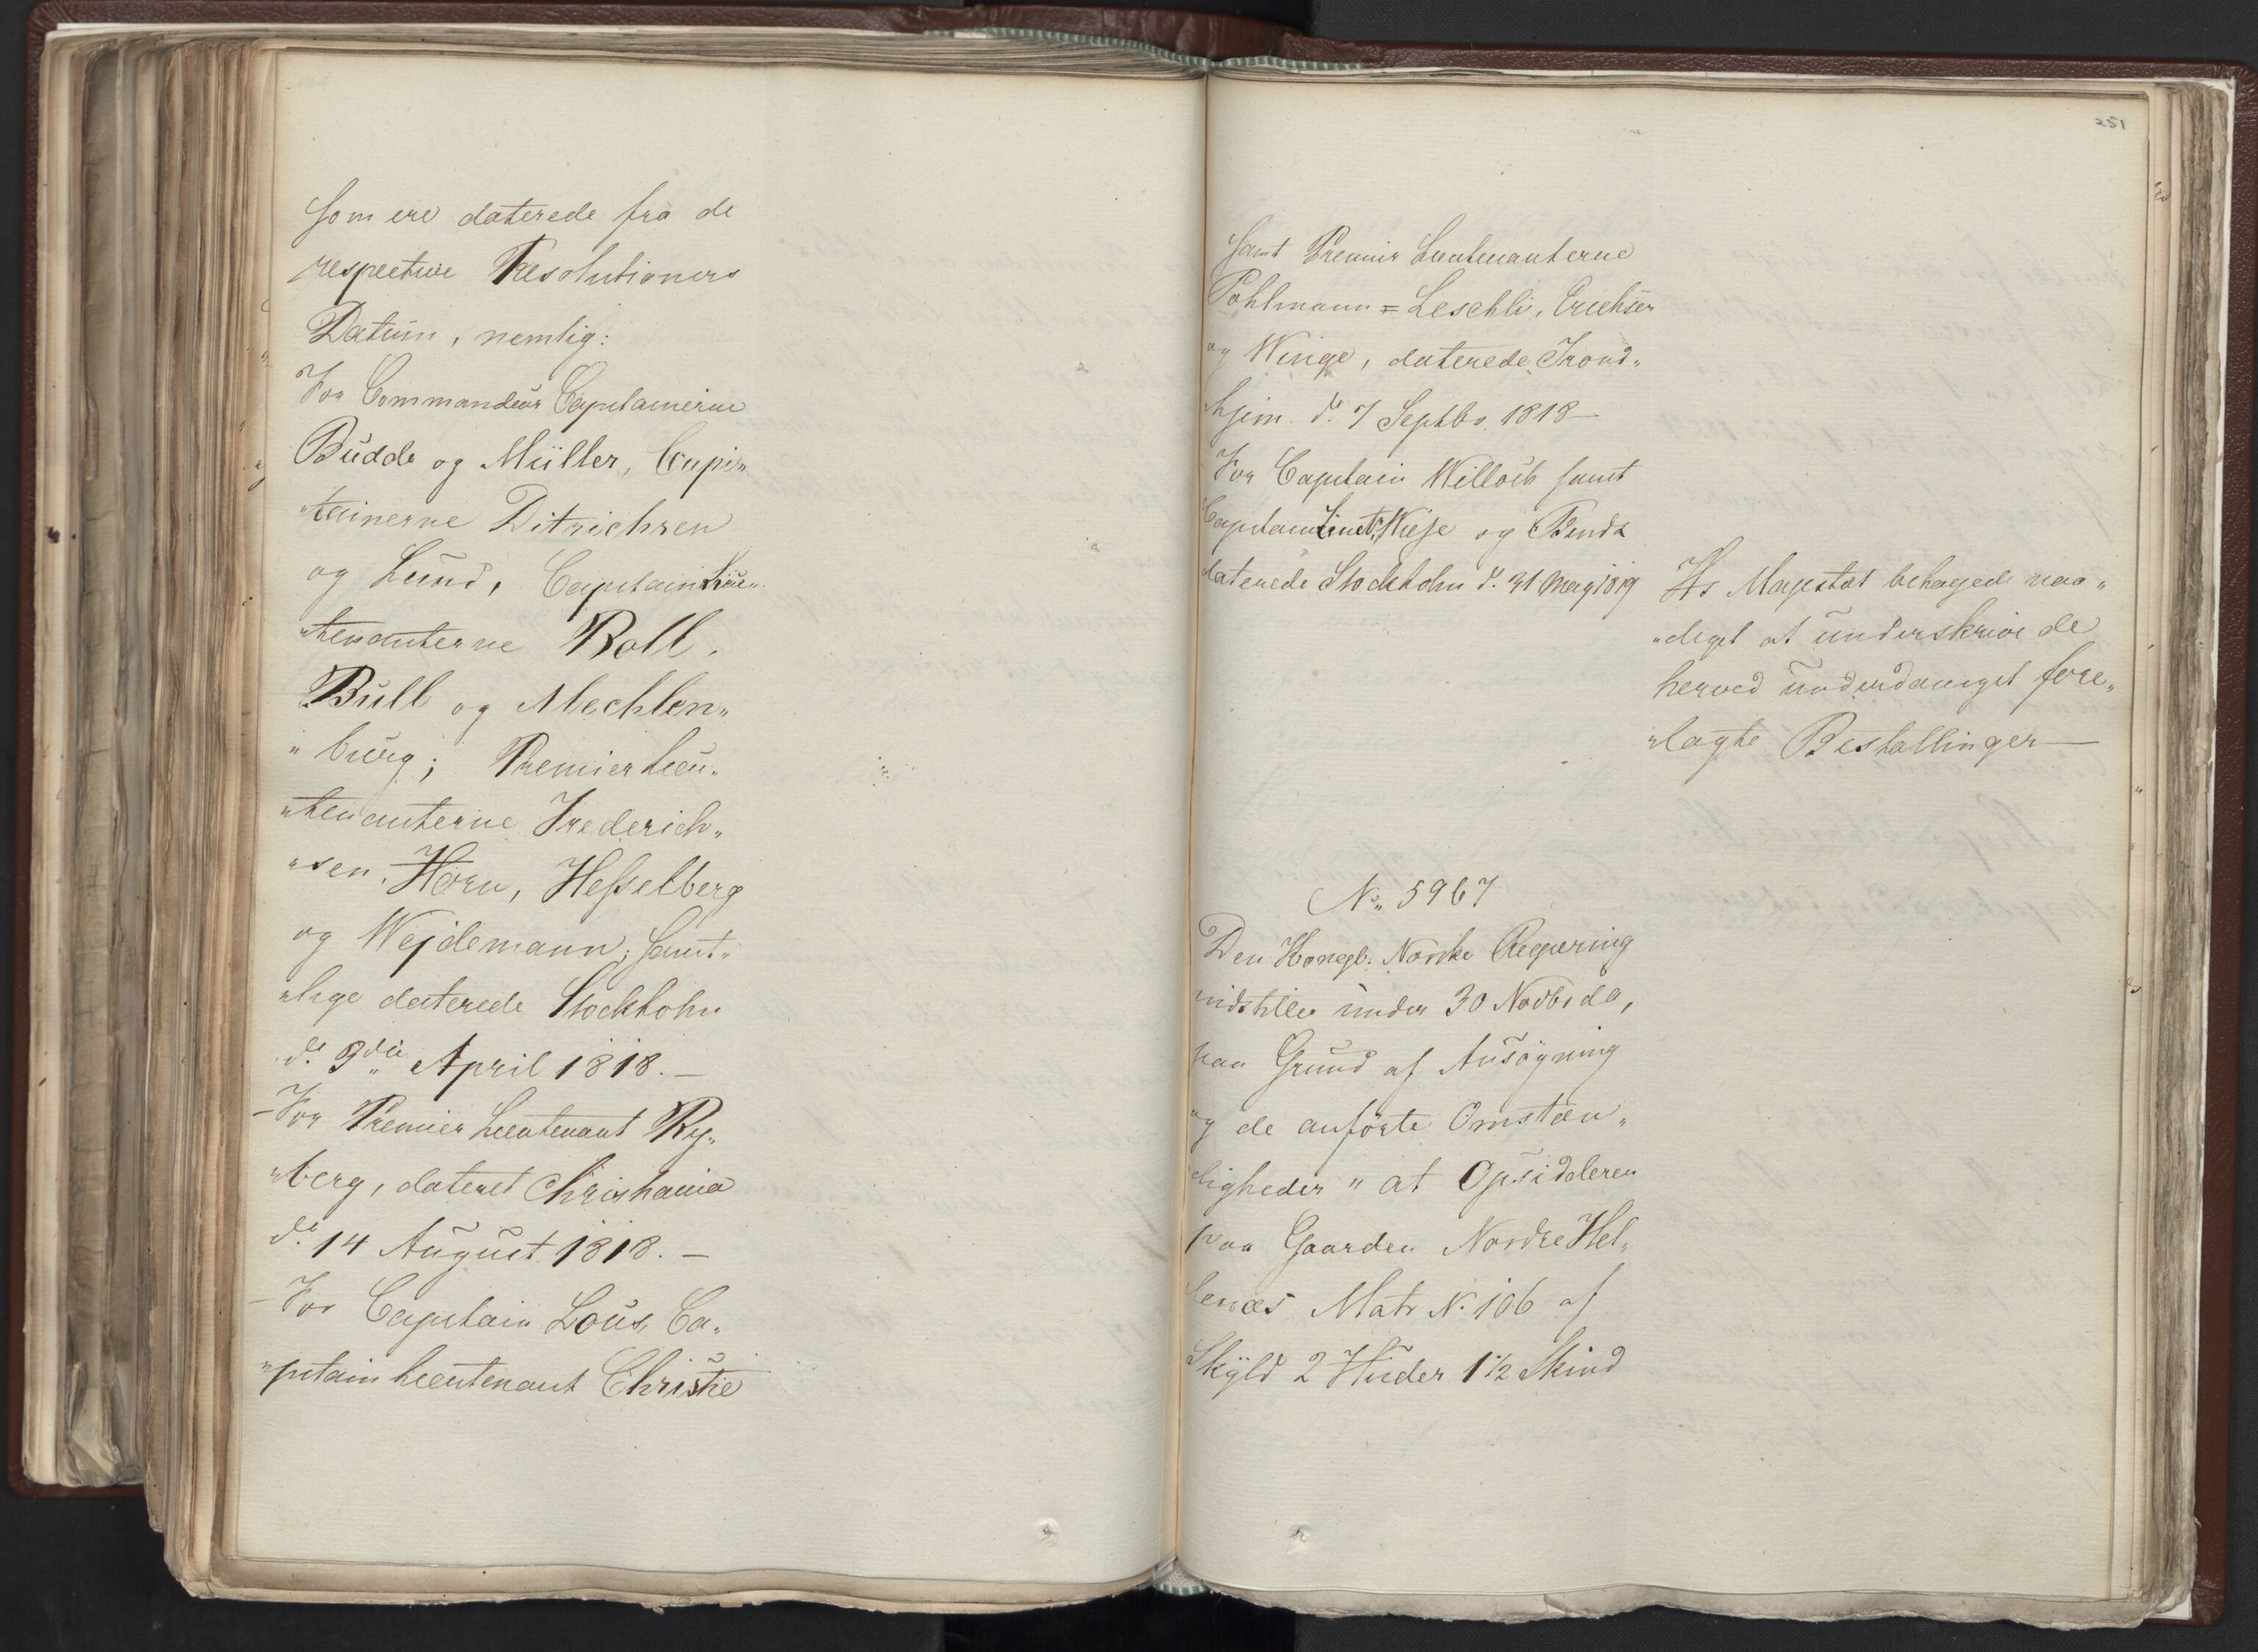 som ere daterede fra de
respective Resolutioners
Datum, nemlig:
For Commandeur Capitainerne
Budde og Müller, Capi„
„tainerne Ditrichsen
og Lund, Capitainlieu„
„tenanterne Roll,
Bull og Mechlen„
„burg; Premierlieu„
„tenanterne Frederich„
„sen, Horn, Hesselberg
og Wejdemann, samt„
„lige daterede Stockholm
d. 9de April 1818.—
— For Premier Lieutenant Ry„
„berg, dateret Christiania
de 14 August 1818.—
— For Capitain Lous, Ca„
„pitain Lieutenant Christie
251
samt Premier Lieutenanterne
Pohlmann = Leschli, Erichsen
og Winge, daterede Trond„
hjem. de 7 Septbr 1818—
For Capitain Willoch samt
Capitain Lieutn. Wiese og Bendz
daterede Stockholm d. 31 May 1819
Hs Majestæt behagede naa„
„digst at underskrive de
herved underdanigst fore„
„lagte Bestallinger—
No. 5967
Den Kongel: Norske Regjering
indstiller under 30 Novbr da,
paa Grund af Ansøgning
og de anførte Omstæn„
digheder „at Opsidderen
paa Gaarden Nordre Hel„
lenæs Matr No. 106 af
Skyld 2 Huder 1 1/2 Skind